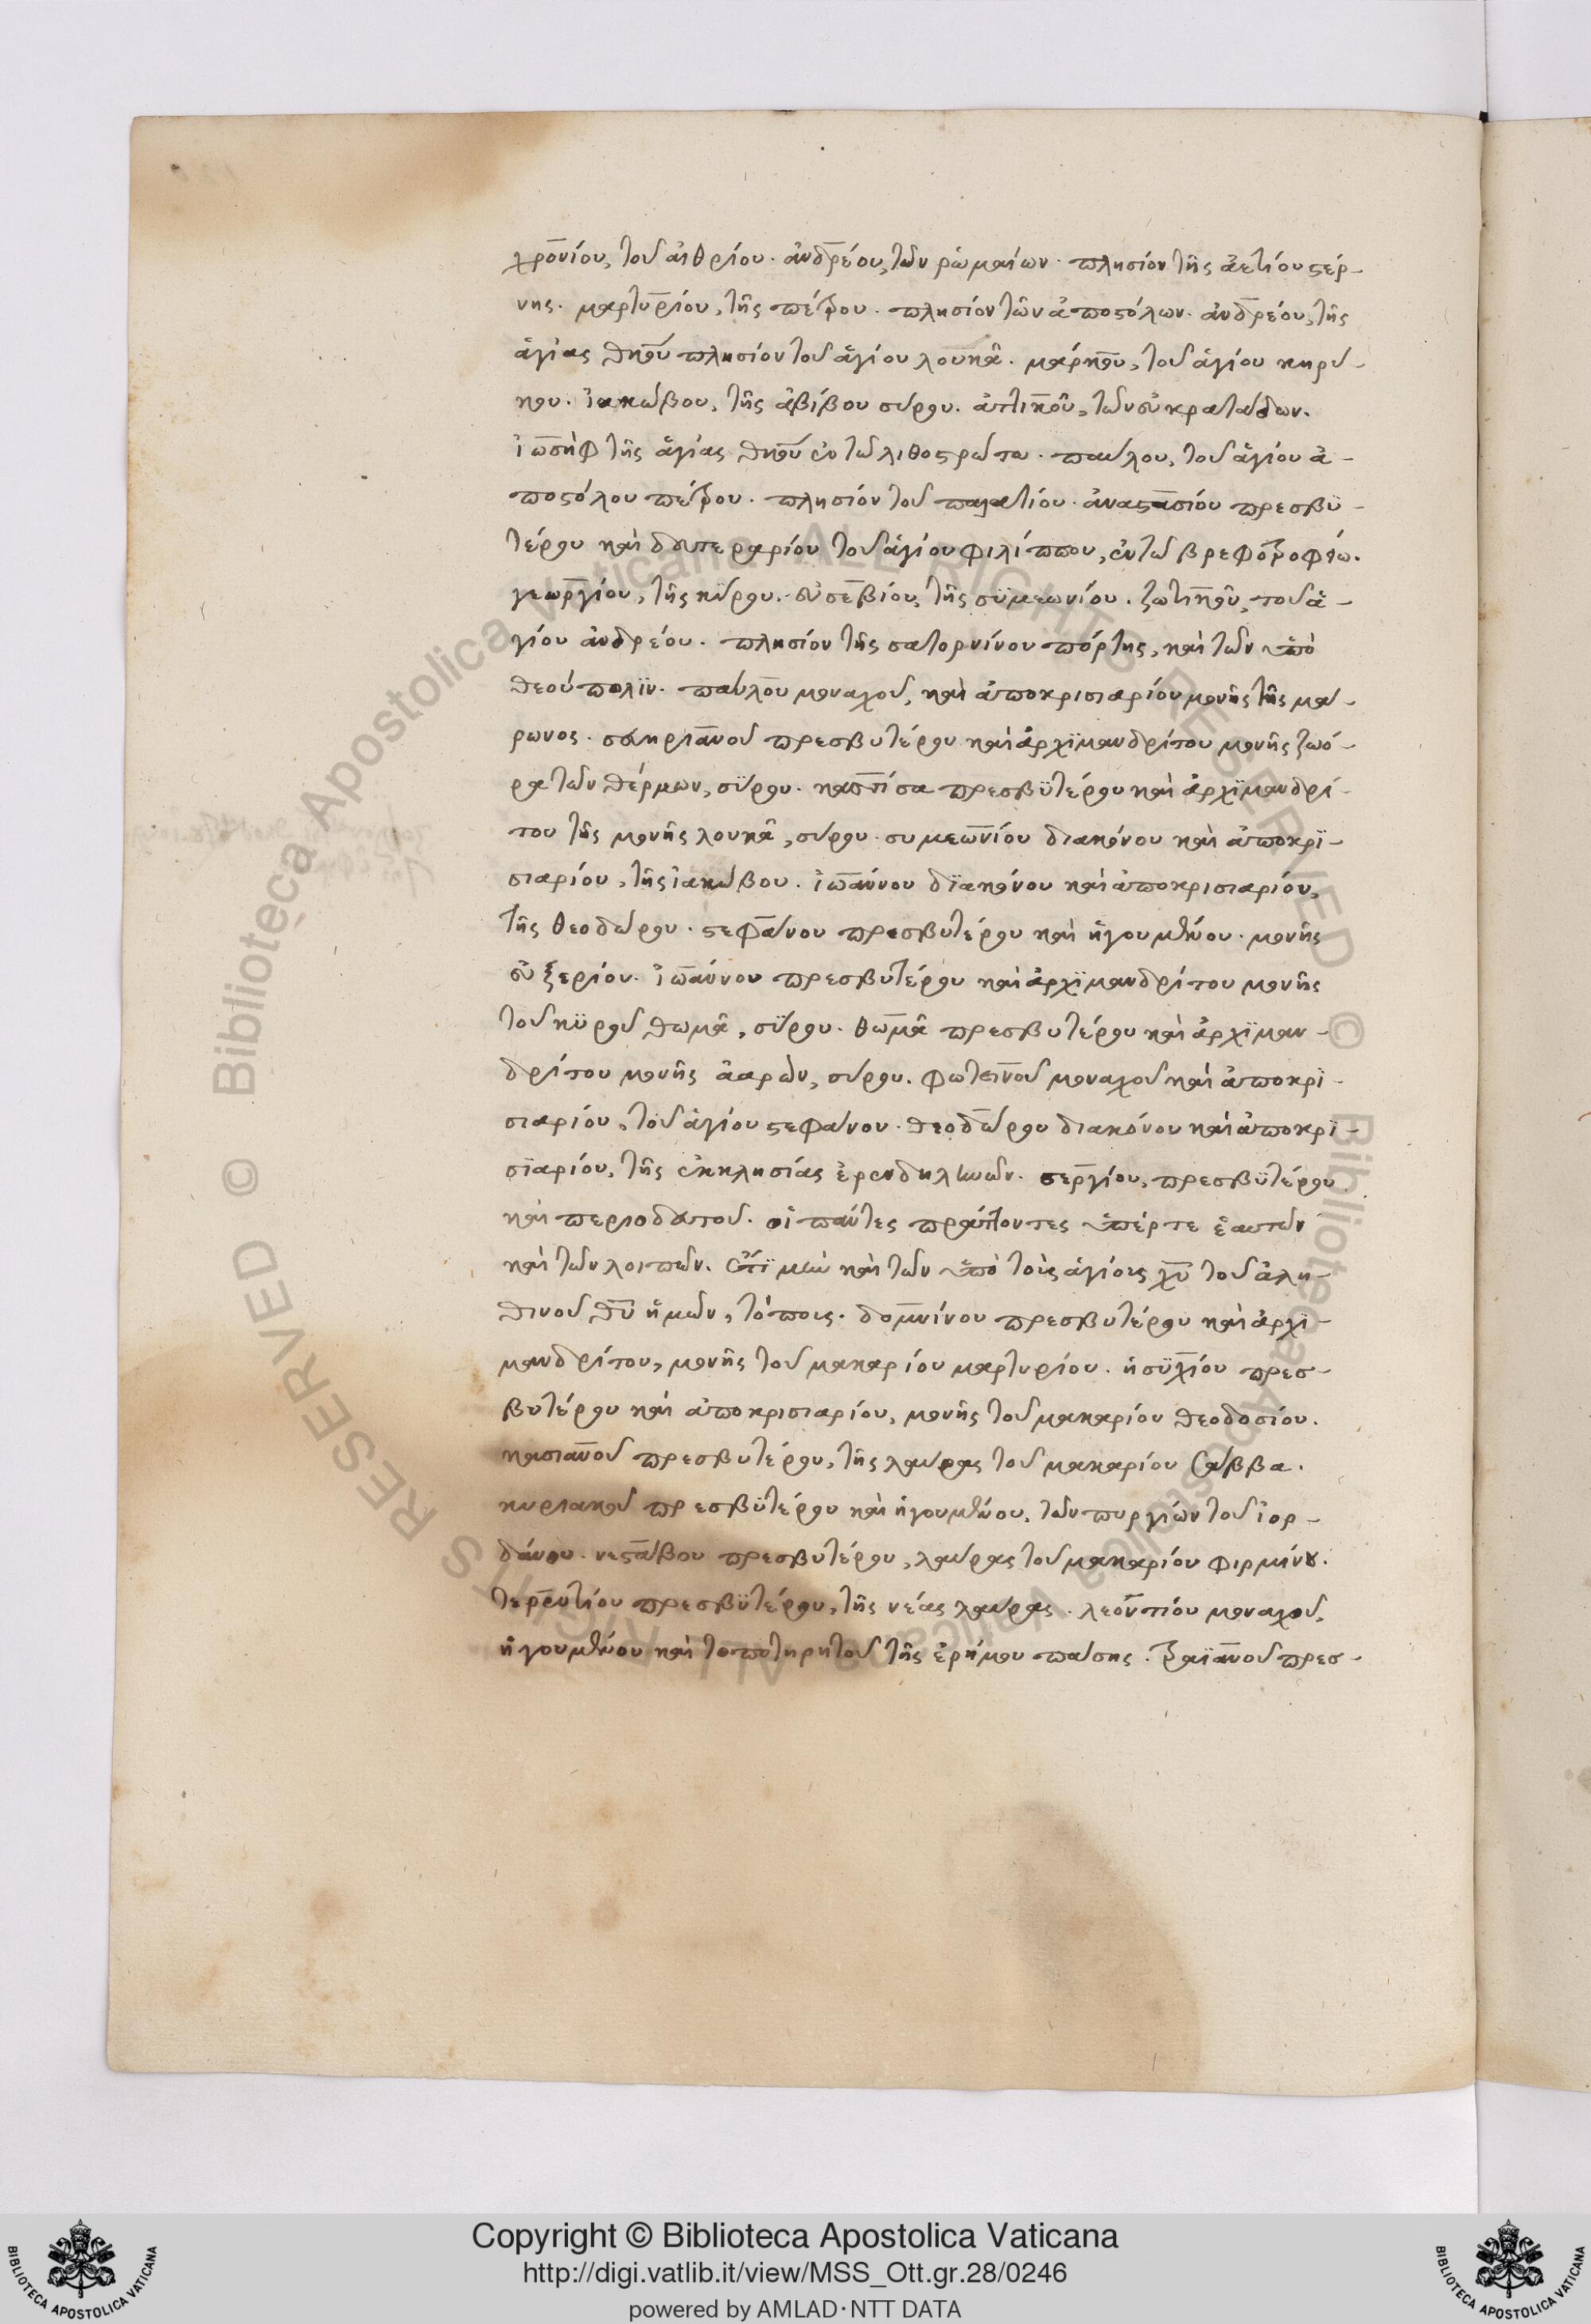 χρονίου, τοῦ αἰθρίου. ἀνδρέου, τῶν ῥωμαίων. πλησίον τῆς ἀετίου στέρ-
νης. μαρτυρίου, τῆς πέτρου. πλησίον τῶν ἀποστόλων. ἀνδρέου, τῆς
ἁγίας θηού πλησίον τοῦ ἁγίου λουκᾶ. μάρκου, τοῦ ἁγίου κηρύ-
κου. ἰακώβου, τῆς ἀβίβου σύρου. ἀττικοῦ, τῶν εὐκρατάδων.
ἰωσὴφ τῆς ἁγίας ἐν τῶ λιθοστρώτω. παύλου, τοῦ ἁγίου ἀ-
ποστόλου πέτρου. πλησίον τοῦ παλατίου. ἀναστασίου πρεσβϋ-
τέρου καὶ δευτεραρίου τοῦ ἁγίου φιλίππου, ἐν τῶ βρεφοτροφείω.
γεωργίου, τῆς κύρου. εὐσεβίου, τῆς συμεωνίου. ζωτικοῦ, τοῦ ἁ-
γίου ἀνδρέου. πλησίον τῆς σατορνίνου πόρτης, καὶ τῶν ὑπὸ
θεούπολϊν. παύλου μοναχοῦ, καὶ ἀποκρισιαρίου μονῆς τῆς μά-
ρωνος. πρεσβυτέρου καὶ ἀρχϊμανδρίτου μονῆς ζωό-
ρα τῶν θέρμων, σύρου. πρεσβϋτέρου καὶ ἀρχϊμανδρί-
του τῆς μονῆς λουκᾶ, σύρου. συμεωνίου διακόνου καὶ ἀποκρϊ-
σιαρίου, τῆς ἰακώβου. ἰωάννου δϊακόνου καὶ ἀποκρισιαρίου,
τῆς θεοδώρου. στεφάνου πρεσβυτέρου καὶ ἡγουμένου. μονῆς
εὐξερίου. ἰωάννου πρεσβυτέρου καὶ ἀρχϊμανδρίτου μονῆς
τοῦ κϋροῦ θωμᾶ, σύρου. θωμᾶ πρεσβυτέρου καὶ ἀρχϊμαν-
δρίτου μονῆς ἀαρὼν, σύρου. φωτεινοῦ μοναχοῦ καὶ ἀποκρϊ-
σιαρίου, τοῦ ἁγίου στεφάνου. θεοδώρου διακόνου καὶ ἀποκρϊ-
σϊαρίου, τῆς ἐκκλησίας ἐρενδηλῶν. σεργίου, πρεσβϋτέρου
καὶ περιοδευτοῦ. οἱ πάντες πράττοντες ὑπέρ τε ἑαυτῶν
καὶ τῶν λοιπῶν. ἔτϊ μὴν καὶ τῶν ὑπὸ τοῖς ἁγίοις χυ τοῦ ἀλη-
θινοῦ θυ ἡμῶν, τόποις. δομνίνου πρεσβυτέρου καὶ ἀρχϊ-
μανδρίτου, μονῆς τοῦ μακαρίου μαρτυρίου. ἡσϋχίου πρεσ-
βυτέρου καὶ ἀποκρισιαρίου, μονῆς τοῦ μακαρίου θεοδοσίου.
κασιανοῦ πρεσβυτέρου, τῆς λαύρας τοῦ μακαρίου σάββα.
κυριακοῦ πρεσβϋτέρου καὶ ἡγουμένου, τῶν πυργίων τοῦ ἰορ-
δάνου. νεστάβου πρεσβυτέρου, λαύρας τοῦ μακαρίου φιρμίνου.
τερεντίου πρεσβϋτέρου, τῆς νέας λαύρας. λεοντίου μοναχοῦ,
ἡγουμένου καὶ τοποτηρητοῦ τῆς ἐρήμου πάσης. τραϊανοῦ πρεσ-
Copyright © Biblioteca Apostolica Vaticana
http://digi.vatlib.it/view/MSS_Ott.gr.28/0246
powered by AMLAD·NTT DATA